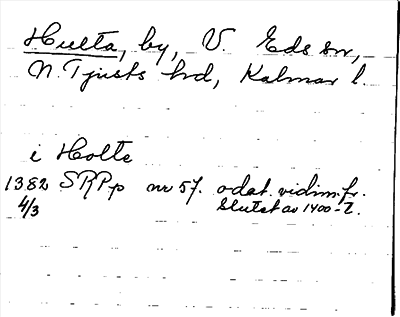 Hulta, by, V. Eds sn,
N. Tjusts hd, Kalmar l.
i Holte
1382 SRPp nr 57. odat. vidim. fr.
4/3 Slutet av 1400-t.